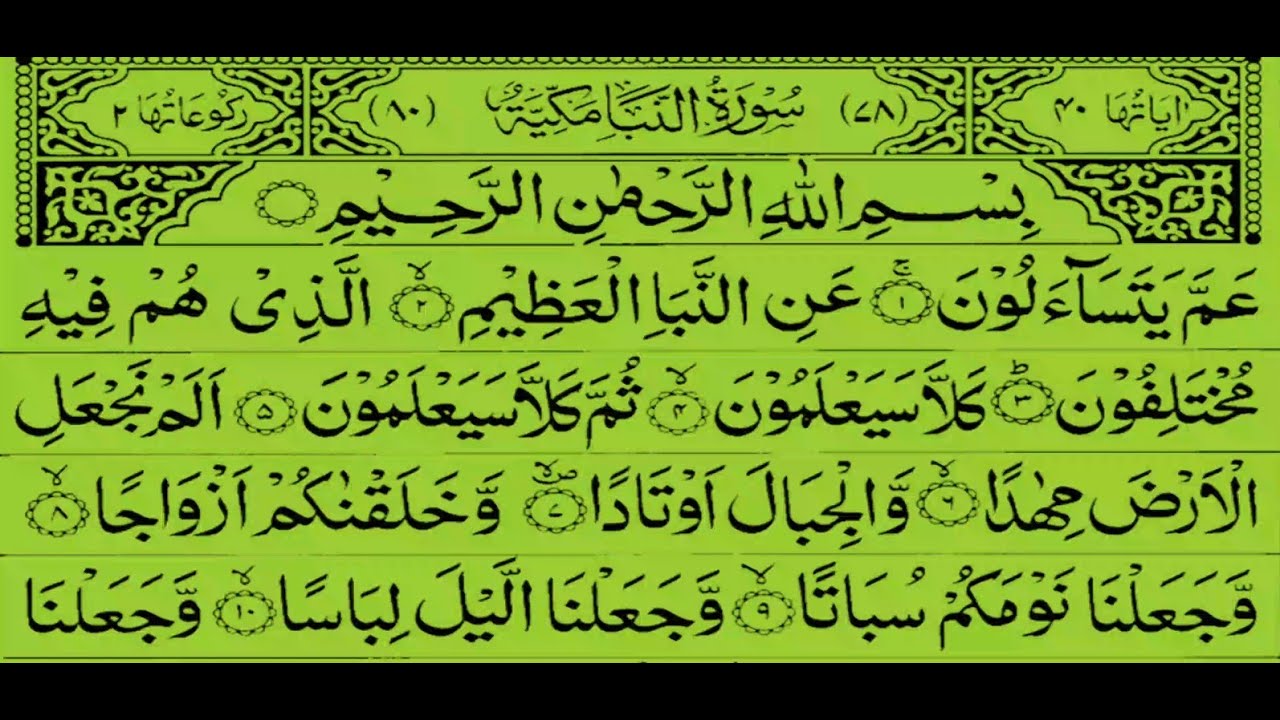 اٰيَاتُهَا ٤٠ (٧٨) سُوْرَةُ النَّبَاِ مَكِّيَّةٌ (٨٠) رُكُوْعَاتُهَا ٢
بِسْمِ اللّٰهِ الرَّحْمٰنِ الرَّحِيْمِ
عَمَّ يَتَسَآءَلُوْنَ ۚ‏ ١ عَنِ النَّبَاِ الْعَظِيْمِۙ‏ ٢ الَّذِىْ هُمْ فِيْهِ
مُخْتَلِفُوْنَؕ‏ ٣ كَلَّا سَيَعْلَمُوْنَۙ‏ ٤ ثُمَّ كَلَّا سَيَعْلَمُوْنَ‏ ٥ اَلَمْ نَجْعَلِ
الْاَرْضَ مِهٰدًاۙ‏ ٦ وَّالْجِبَالَ اَوْتَادًا ۪ۙ‏ ٧ وَّخَلَقْنٰكُمْ اَزْوَاجًاۙ‏ ٨
وَّجَعَلْنَا نَوْمَكُمْ سُبَاتًاۙ‏ ٩ وَّجَعَلْنَا الَّيْلَ لِبَاسًاۙ‏ ١٠ وَّجَعَلْنَا